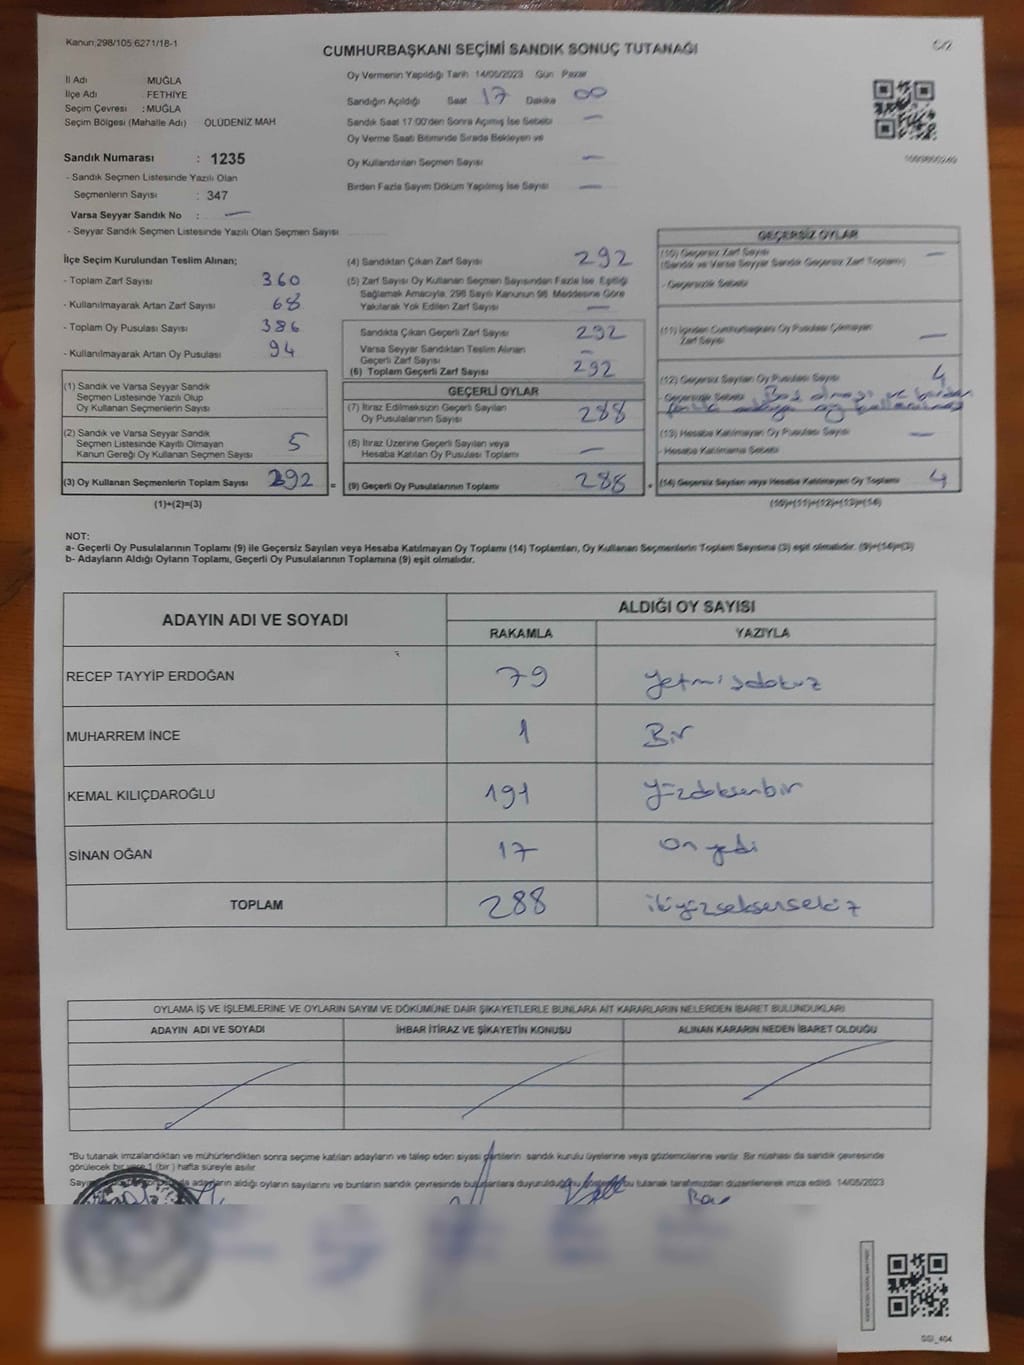 Kanun:298/105;6271/18-1
CUMHURBAŞKANI SEÇİMİ SANDIK SONUÇ TUTANAĞI
İl Adı MUĞLA
İlçe Adı : FETHİYE
Seçim Çevresi : MUĞLA
Seçim Bölgesi (Mahalle Adı) ÖLÜDENİZ MAH
Sandık Numarası : 1235
- Sandık Seçmen Listesinde Yazılı Olan
Seçmenlerin Sayısı : 347
Varsa Seyyar Sandık No : —
- Seyyar Sandık Seçmen Listesinde Yazılı Olan Seçmen Sayısı
Oy Vermenin Yapıldığı Tarih 14/05/2023 Gün Pazar
Sandığın Açıldığı Saat 17 Dakika 00
Sandık Saat 17:00'den Sonra Açılmış İse Sebebi —
Oy Verme Saati Bitiminde Sırada Bekleyen ve
Oy Kullandırılan Seçmen Sayısı —
Birden Fazla Sayım Döküm Yapılmış İse Sayısı —
İlçe Seçim Kurulundan Teslim Alınan;
- Toplam Zarf Sayısı 360
- Kullanılmayarak Artan Zarf Sayısı 68
- Toplam Oy Pusulası Sayısı 386
- Kullanılmayarak Artan Oy Pusulası 94
(1) Sandık ve Varsa Seyyar Sandık
Seçmen Listesinde Yazılı Olup
Oy Kullanan Seçmenlerin Sayısı
(2) Sandık ve Varsa Seyyar Sandık
Seçmen Listesinde Kayıtlı Olmayan
Kanun Gereği Oy Kullanan Seçmen Sayısı 5
(3) Oy Kullanan Seçmenlerin Toplam Sayısı 292 =
(1)+(2)=(3)
(4) Sandıktan Çıkan Zarf Sayısı 292
(5) Zarf Sayısı Oy Kullanan Seçmen Sayısından Fazla İse, Eşitliği
Sağlamak Amacıyla, 298 Sayılı Kanunun 98. Maddesine Göre
Yakılarak Yok Edilen Zarf Sayısı —
Sandıkta Çıkan Geçerli Zarf Sayısı 292
Varsa Seyyar Sandıktan Teslim Alınan
Geçerli Zarf Sayısı —
(6) Toplam Geçerli Zarf Sayısı 292
GEÇERLİ OYLAR
(7) İtiraz Edilmeksizin Geçerli Sayılan
Oy Pusulasının Sayısı 288
(8) İtiraz Üzerine Geçerli Sayılan veya
Hesaba Katılan Oy Pusulası Toplamı —
(9) Geçerli Oy Pusulalarının Toplamı 288 +
GEÇERSİZ OYLAR
(10) Geçersiz Zarf Sayısı —
(Sandık ve Varsa Seyyar Sandık Geçersiz Zarf Toplamı)
- Geçersizlik Sebebi
(11) İçinden Cumhurbaşkanı Oy Pusulası Çıkmayan
Zarf Sayısı —
(12) Geçersiz Sayılan Oy Pusulası Sayısı 4
- Geçersizlik Sebebi Boş olması ve birden
fazla adaya oy kullanılması
(13) Hesaba Katılmayan Oy Pusulası Sayısı —
- Hesaba Katılmama Sebebi
(14) Geçersiz Sayılan veya Hesaba Katılmayan Oy Toplamı 4
(10)+(11)+(12)+(13)=(14)
NOT:
a- Geçerli Oy Pusulalarının Toplamı (9) ile Geçersiz Sayılan veya Hesaba Katılmayan Oy Toplamı (14) Toplamları, Oy Kullanan Seçmenlerin Toplam Sayısına (3) eşit olmalıdır. (9)+(14)=(3)
b- Adayların Aldığı Oyların Toplamı, Geçerli Oy Pusulalarının Toplamına (9) eşit olmalıdır.
ADAYIN ADI VE SOYADI ALDIĞI OY SAYISI
RAKAMLA YAZIYLA
RECEP TAYYİP ERDOĞAN 79 yetmişdokuz
MUHARREM İNCE 1 Bir
KEMAL KILIÇDAROĞLU 191 yüzdoksanbir
SİNAN OĞAN 17 on yedi
TOPLAM 288 ikiyüzseksensekiz
OYLAMA İŞ VE İŞLEMLERİNE VE OYLARIN SAYIM VE DÖKÜMÜNE DAİR ŞİKAYETLERLE BUNLARA AİT KARARLARIN NELERDEN İBARET BULUNDUKLARI
ADAYIN ADI VE SOYADI İHBAR İTİRAZ VE ŞİKAYETİN KONUSU ALINAN KARARIN NEDEN İBARET OLDUĞU
*Bu tutanak imzalandıktan ve mühürlendikten sonra seçime katılan adayların ve talep eden siyasi partilerin sandık kurulu üyelerine veya gözlemcilerine verilir. Bir nüshası da sandık çevresinde
görülecek bir yere 1 (bir) hafta süreyle asılır
adayların aldığı oyların sayılarını ve bunların sandık çevresinde bulunanlara duyurulduğunu bu tutanak tarafımızdan düzenlenerek imza edildi. 14/05/2023
SSI_404